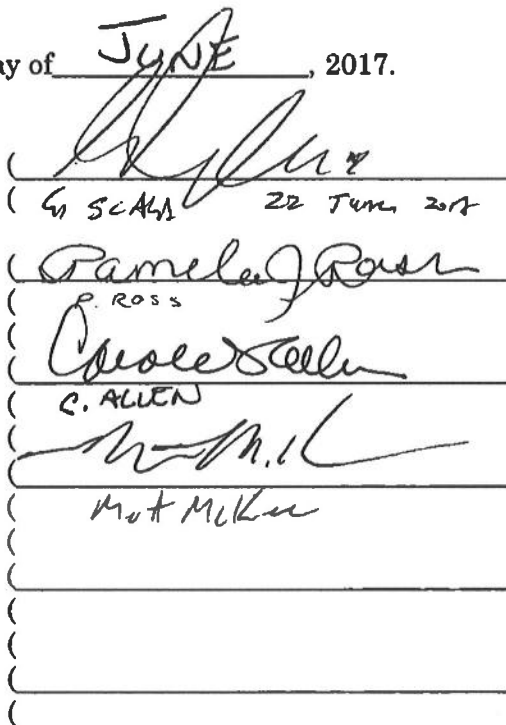 ay of JUNE, 2017.
SCALA 22 June 2017
Pamela J Ross
P. ROSS
C. ALLEN
Matt McKee